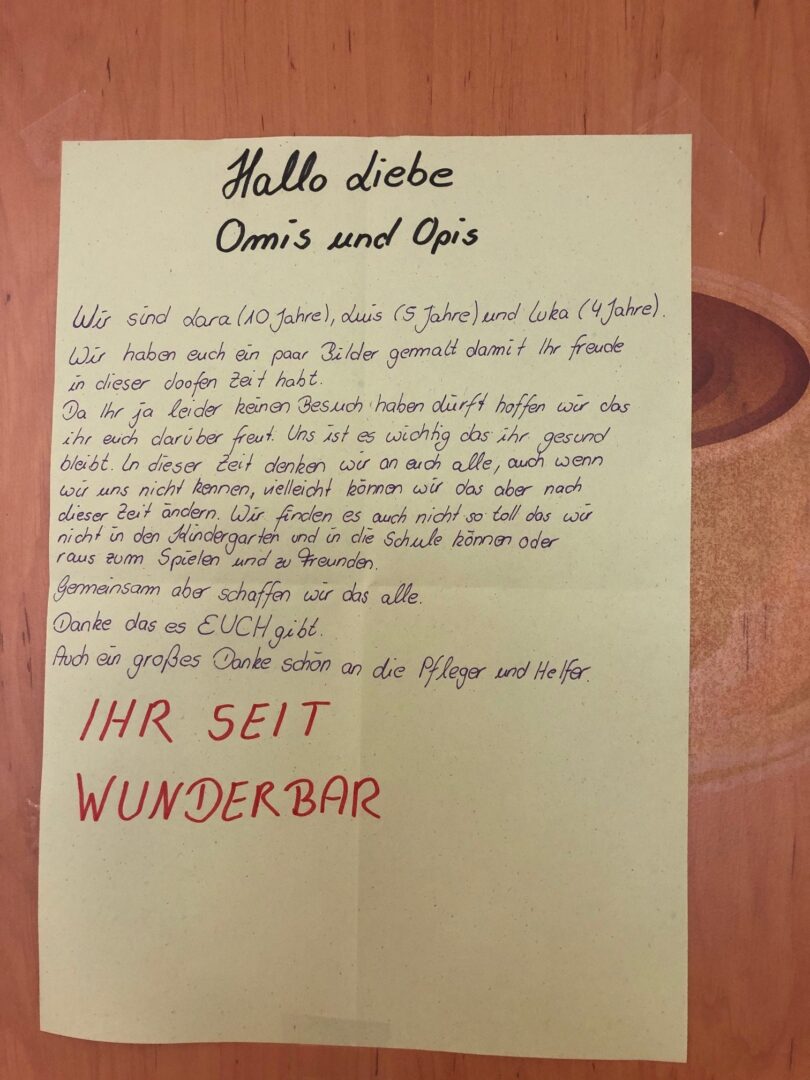 Hallo Liebe
Omis und Opis
Wir sind Lara (10 Jahre), Luis (5 Jahre) und Luka (4 Jahre).
Wir haben euch ein paar Bilder gemalt damit Ihr freude
in dieser doofen Zeit habt.
Da Ihr ja leider keinen Besuch haben dürft hoffen wir das
ihr euch darüber freut. Uns ist es wichtig das ihr gesund
bleibt. In dieser Zeit denken wir an euch alle, auch wenn
wir uns nicht kennen, vielleicht können wir das aber nach
dieser Zeit ändern. Wir finden es auch nicht so toll das wir
nicht in den Kindergarten und in die Schule können oder
raus zum Spielen und zu Freunden.
Gemeinsam aber schaffen wir das alle.
Danke das es EUCH gibt.
Auch ein großes Danke schön an die Pfleger und Helfer.
IHR SEIT
WUNDERBAR